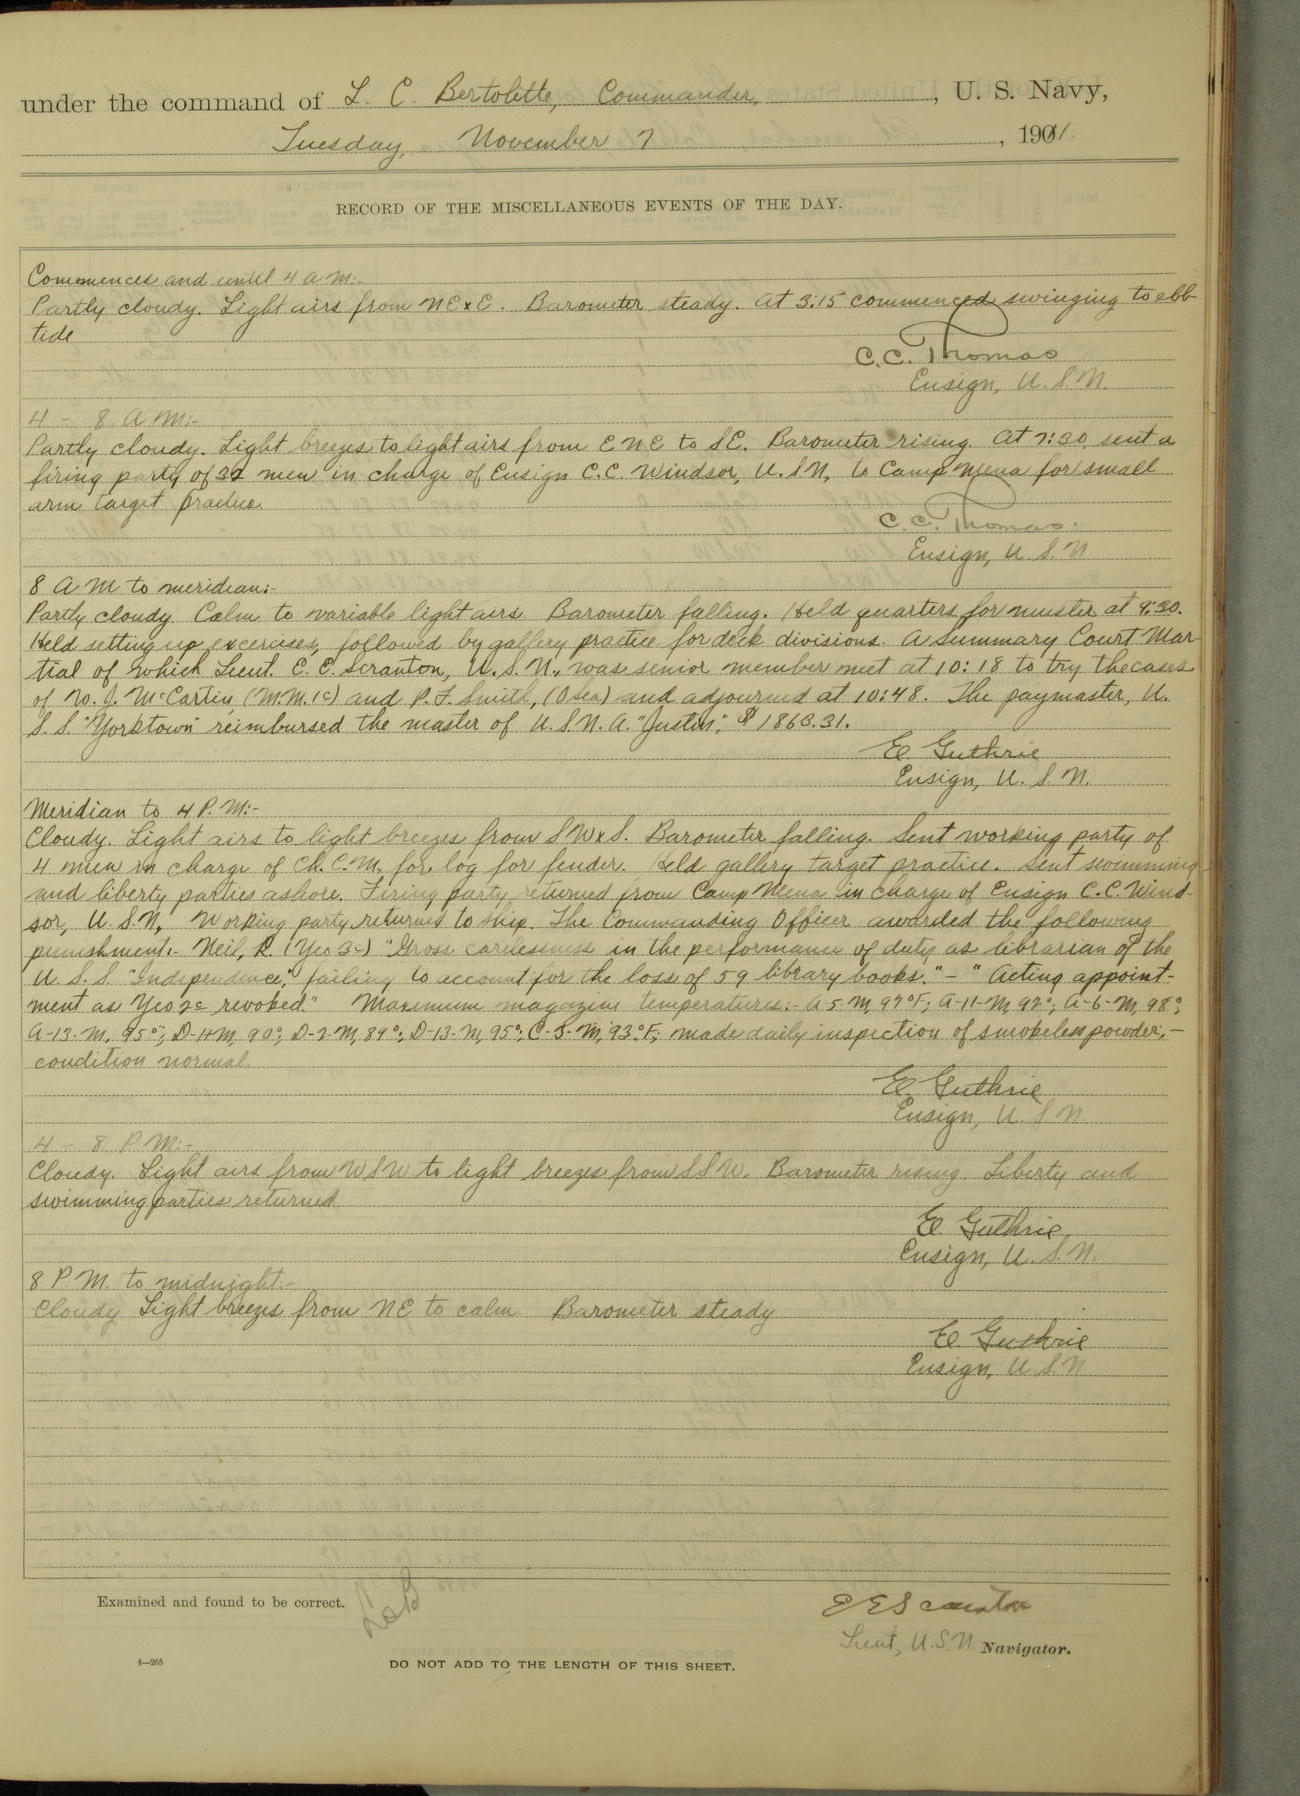 under the command of L. C. Bertolette, Commander, , U. S. Navy,
Tuesday, November 7 , 1911.
RECORD OF THE MISCELLANEOUS EVENTS OF THE DAY.
Commences and until 4 a m:-
Partly cloudy. Light airs from NExE. Barometer steady. At 3:15 commenced swinging to ebb
tide
C. C. Thomas
Ensign, U. S. N.
4 - 8 A M:-
Partly cloudy. Light breezes to light airs from ENE to SE. Barometer rising. At 7:30 sent a
firing party of 32 men in charge of Ensign C. C. Windsor, U. S. N, to Camp Mena for small
arm target practice.
C. C. Thomas.
Ensign, U. S. N
8 A M to meridian:-
Partly cloudy Calm to variable light airs Barometer falling. Held quarters for muster at 9:30.
Held setting up excercises, followed by gallery practice for deck divisions. A Summary Court Mar-
tial of which Lieut. E. E. Scranton, U. S. N., was senior member met at 10:18 to try the cases
of W. J. McCartin, (M.M.1c) and P. F. Smith, (O Sea) and adjourned at 10:48. The paymaster, U.
S. S. "Yorktown" reimbursed the master of U. S. N. A. "Justin", $1863.31.
E Guthrie
Ensign, U. S. N.
Meridian to 4 P. M:-
Cloudy. Light airs to light breezes from SWxS. Barometer falling. Sent working party of
4 men in charge of Ch. C. M. for log for fender. Held gallery target practice. Sent swimming
and liberty parties ashore. Firing party returned from Camp Mena in charge of Ensign C. C. Wind-
sor, U. S. N. Working party returned to ship. The Commanding Officer awarded the following
punishment:- Neil, R. (Yeo 3c) "Gross carelessness in the performance of duty as librarian of the
U. S. S. "Independence", failing to account for the loss of 59 library books." - "Acting appoint-
ment as Yeo 2c revoked." Maximum magazine temperatures:- A-5-M, 97°F; A-11-M, 92°; A-6-M, 98°;
A-13-M, 95°; D-11-M, 90°; D-2-M, 89°; D-13-M, 95°; C-5-M, 93°F; made daily inspection of smokeless powder, -
condition normal.
E. Guthrie
Ensign, U. S. N.
4 - 8 P M:-
Cloudy. Light airs from WSW to light breezes from SSW. Barometer rising. Liberty and
swimming parties returned
E. Guthrie,
Ensign, U. S. N.
8 P. M. to midnight:-
Cloudy Light breezes from NE to calm Barometer steady
E. Guthrie
Ensign, U. S. N
Examined and found to be correct. LCB
E E Scranton
Lieut, U. S. N. Navigator.
4—265
DO NOT ADD TO THE LENGTH OF THIS SHEET.